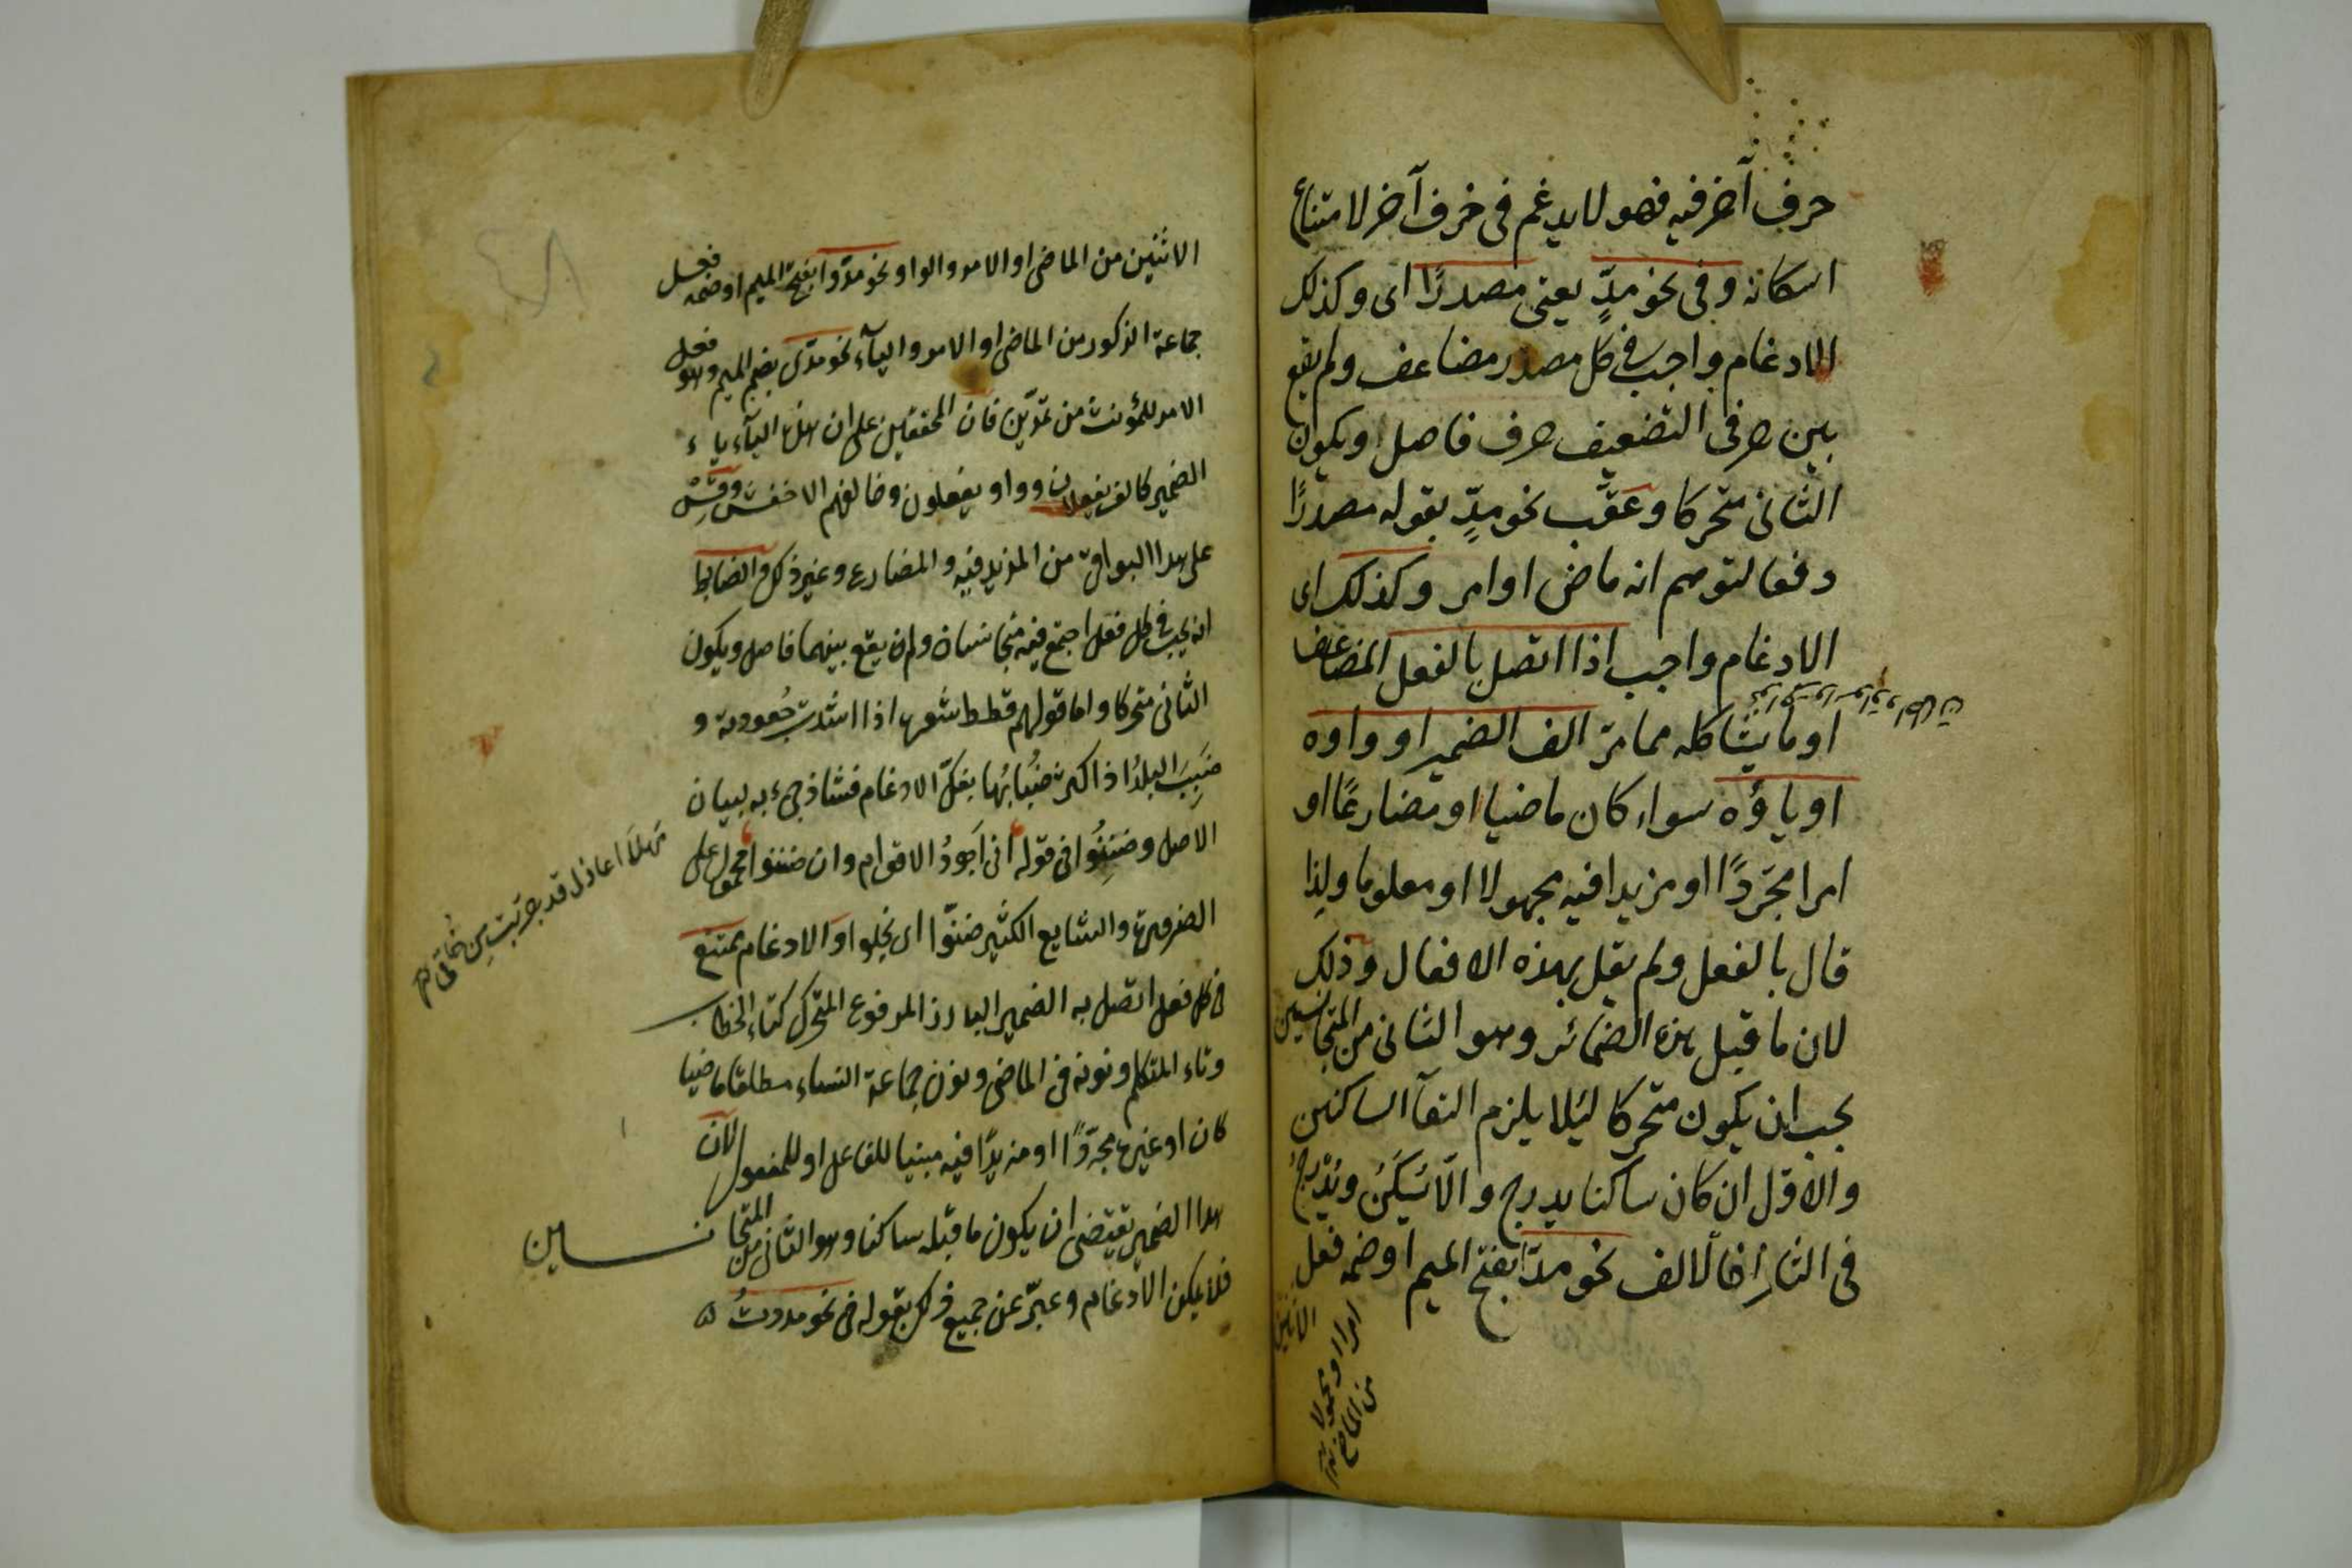 حرف آخر فيه فهو لا يدغم فى حرف آخر لامتناع
اسكانه وفى نحو مدٍّ يعنى مصدرًا اى وكذلك
الادغام واجب فى كل مصدر مضاعف ولم يقع
بين حرفى التضعيف حرف فاصل ويكون
الثانى متحركا وعقّب نحو مدٍّ بقوله مصدرًا
دفعا لتوهم انه ماض او امر وكذلك اى
الادغام واجب اذا اتصل بالفعل المضاعف
او ما يشاكله مما مرّ الف الضمير او واوه
او ياؤه سواء كان ماضيا او مضارعًا او
امرا مجرّدًا او مزيدا فيه مجهولا او معلوما ولذا
قال بالفعل ولم يقل بهذه الافعال وذلك
لان ما قبل هذه الضمائر وهو الثانى من المتجانسين
يجب ان يكون متحركا لئلا يلزم التقآ الساكنين
والاوّل ان كان ساكنا يدرج والّا يُسكَّنُ ويُدْرجُ
فى الثانى فالالف نحو مدّا بفتح الميم او ضمه فعل
الاثنين
امرا او مجهولا
من الماضى
الاثنين من الماضى او الامر والواو نحو مدّوا بفتح الميم او ضمه فعل
جماعة الذكور من الماضى او الامر واليآء نحو مدّى بضم الميم وهو فعل
الامر للمؤنث من تمدّين فان المحققين على ان هذه اليآء ياء
الضمير كالف يفعلان وواو يفعلون وخالفهم الاخفش وقِسْ
على هذا البواقى من المزيد فيه والمضارع وغير ذلك والضابط
انه يجب فى كل فعل اجتمع فيه متجانسان ولم يقع بينهما فاصل ويكون
الثانى متحركا واما قولهم قطط شعرها اذا اشتدت جُعودته و
ضَبِبَ البلدُ اذا اكثرت ضُبابُها بفكّ الادغام فشاذ جىء به لبيان
الاصل وضَنِنُوا فى قوله انى اَجودُ الاقوام وان ضننوا محمول على
الضرورة والشايع الكثير ضنّوا اى بخلوا والادغام ممتنع
فى كل فعل اتصل به الضمير البارز المرفوع المتحرك كتاء الخطاب
وتاء المتكلم ونونه فى الماضى ونون جماعة النساء مطلقا ماضيا
كان او غيره مجرّدًا او مزيدًا فيه مبنيا للفاعل او للمفعول لان
هذا الضمير يقتضى ان يكون ما قبله ساكنا وهو الثانى من المتجانسين
فلا يمكن الادغام وعبّر عن جميع ذلك بقوله فى نحو مددتُ
مهلًا اعاذل قد جرّبت من خُلقى